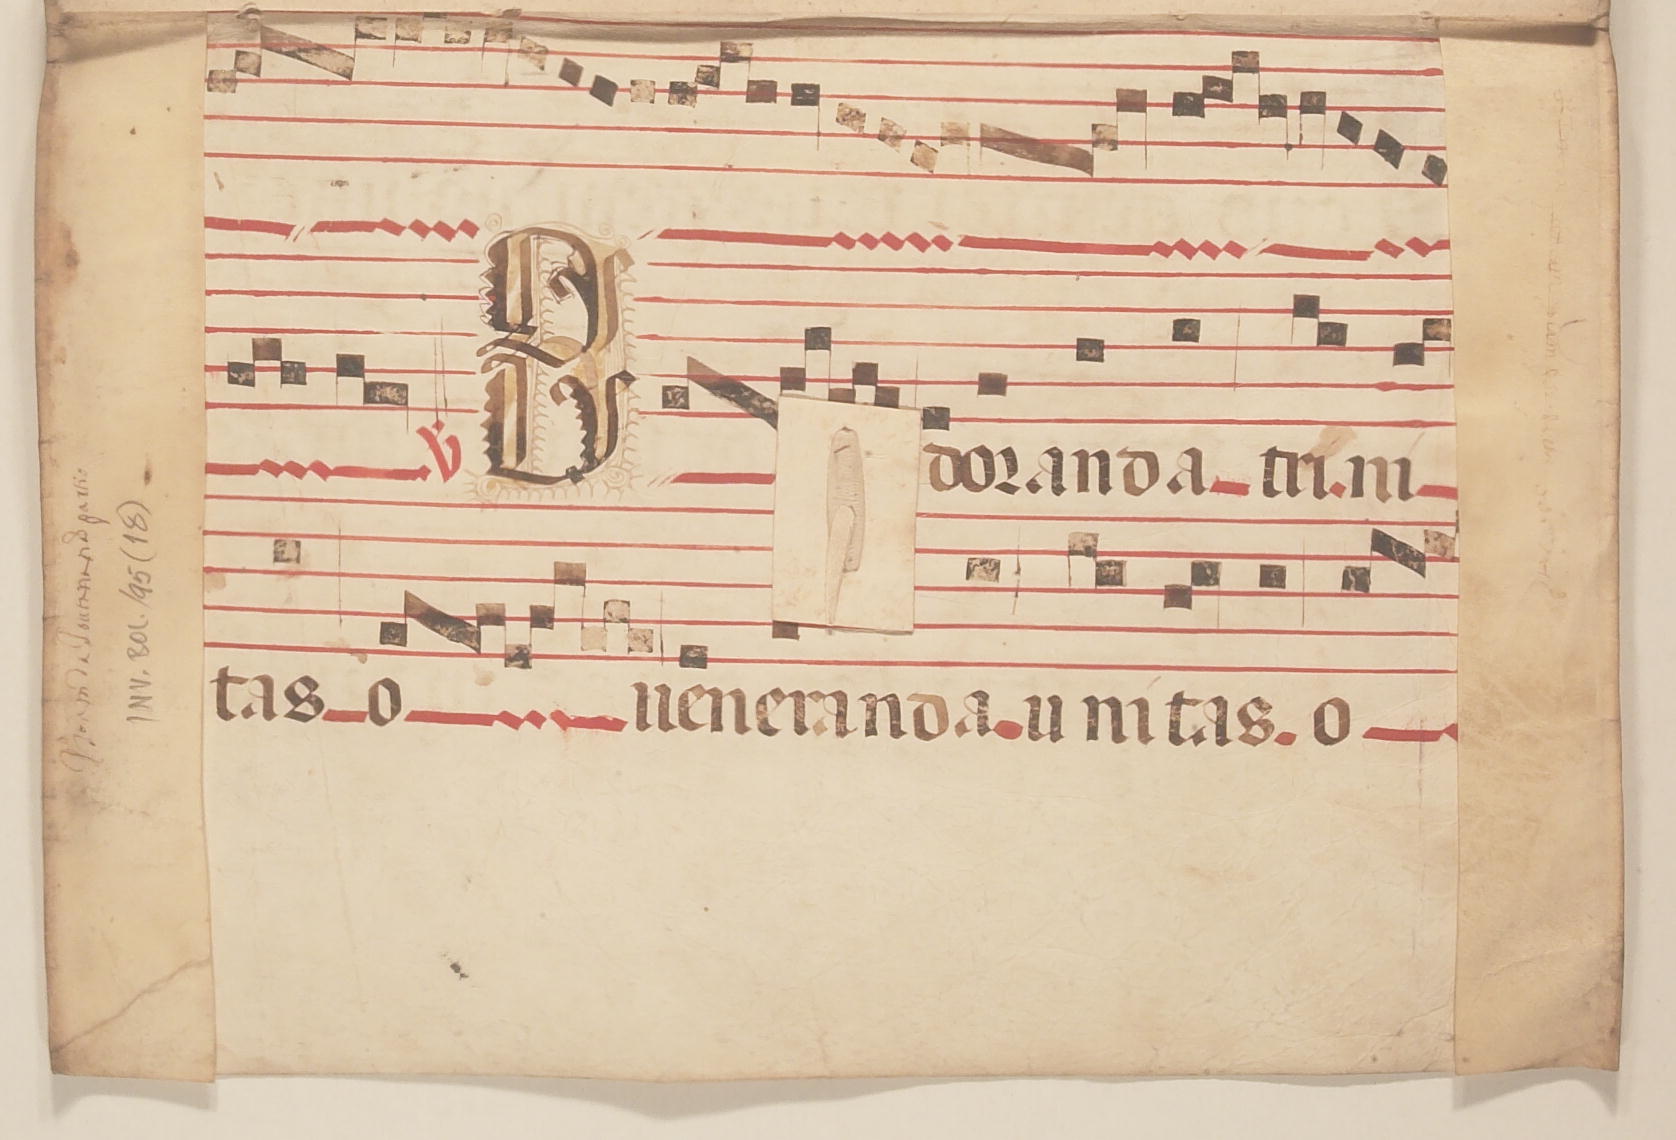 ℣ A doranda trini
tas o ueneranda unitas. o
INV. BOL. 195 (18)